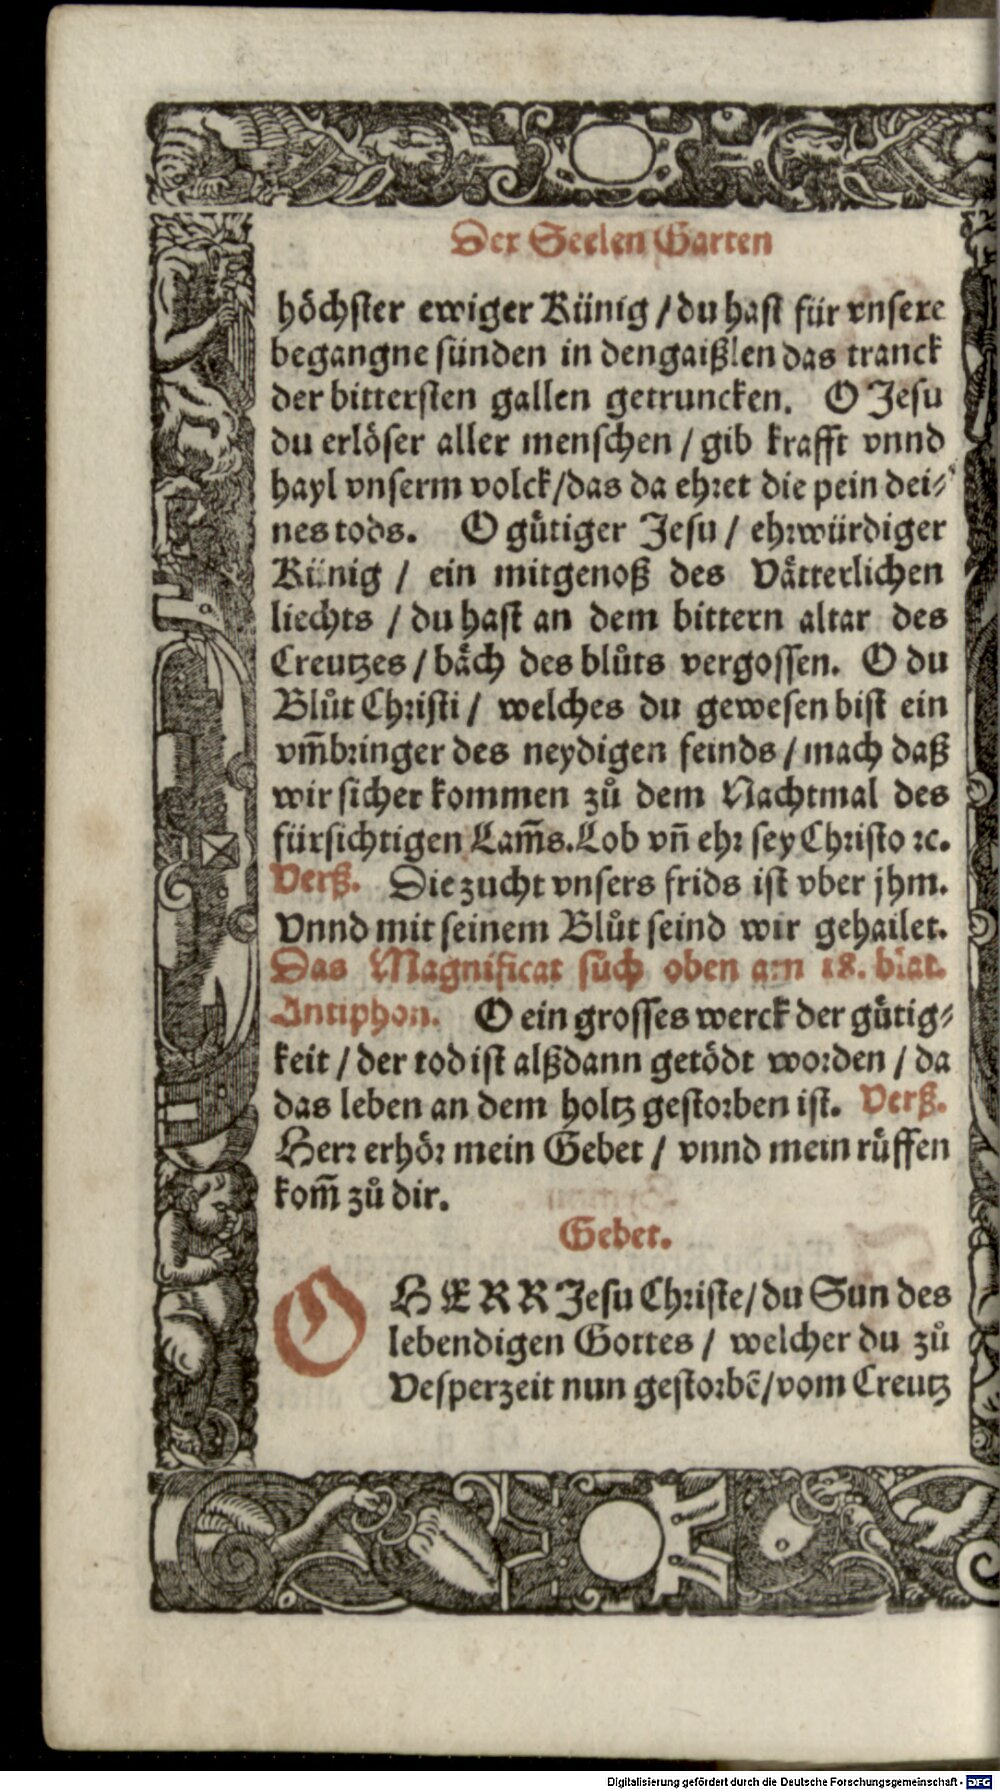 Der Seelen Garten
höchster ewiger Künig / du hast für vnsere
begangne sünden in dengaißlen das tranck
der bittersten gallen getruncken. O Jesu
du erlöser aller menschen / gib krafft vnnd
hayl vnserm volck/das da ehret die pein dei⸗
nes tods. O gůtiger Jesu / ehrwürdiger
Künig / ein mitgenoß des Våtterlichen
liechts / du hast an dem bittern altar des
Creutzes / båch des blůts vergossen. O du
Blůt Christi / welches du gewesen bist ein
vm̃bringer des neydigen feinds / mach daß
wir sicher kommen zů dem Nachtmal des
fürsichtigen Lam̃s. Lob vñ ehr sey Christo ꝛc.
Verß. Die zucht vnsers frids ist vber jhm.
Vnnd mit seinem Blůt seind wir gehailet.
Das Magnificat sůch oben am 18. blat.
Antiphon. O ein grosses werck der gůtig⸗
keit / der tod ist alßdann getödt worden / da
das leben an dem holtz gestorben ist. Verß.
Herr erhör mein Gebet / vnnd mein růffen
kom̃ zů dir.
Gebet.
O HERR Jesu Christe/ du Sun des
lebendigen Gottes / welcher du zů
Vesperzeit nun gestorbẽ/vom Creutz
Digitalisierung gefördert durch die Deutsche Forschungsgemeinschaft - DFG